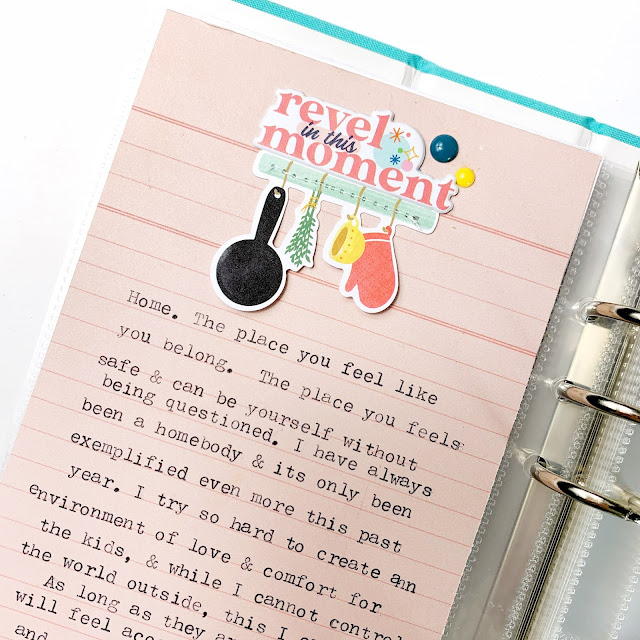 revel
in this
moment
Home. The place you feel like
you belong. The place you feels
safe & can be yourself without
being questioned. I have always
been a homebody & its only been
exemplified even more this past
year. I try so hard to create an
environment of love & comfort for
the kids, & while I cannot control
the world outside, this I
As long as they
will feel
and